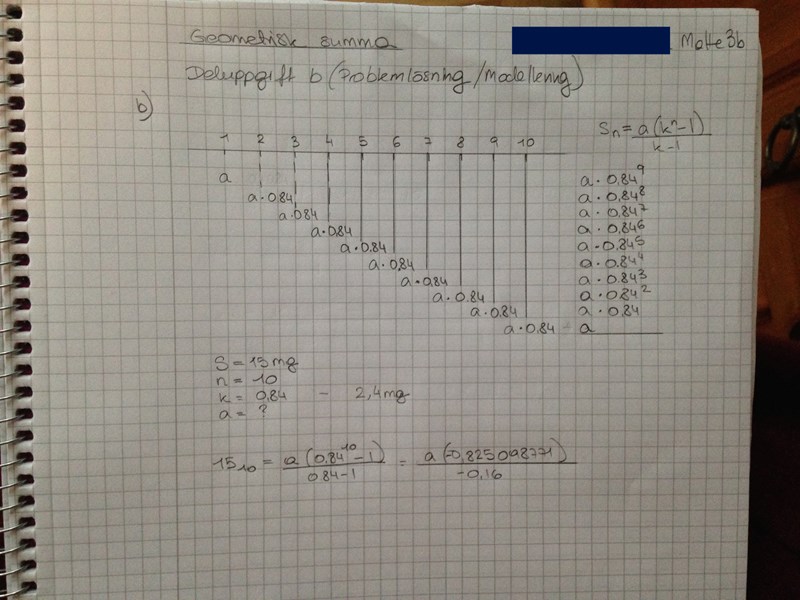 Geometrisk summa
Matte 3b
Deluppgift b (Problemlösning/Modellering)
b)
Sn = a(kⁿ-1)
k-1
1 2 3 4 5 6 7 8 9 10
a
a·0,84
a·0,84
a·0,84
a·0,84
a·0,84
a·0,84
a·0,84
a·0,84
a·0,84
a·0,84⁹
a·0,84⁸
a·0,84⁷
a·0,84⁶
a·0,84⁵
a·0,84⁴
a·0,84³
a·0,84²
a·0,84
a
S = 15mg
n = 10
k = 0,84 - 2,4mg
a = ?
15₁₀ = a(0,84¹⁰-1) = a(-0,825098771)
0,84-1 -0,16